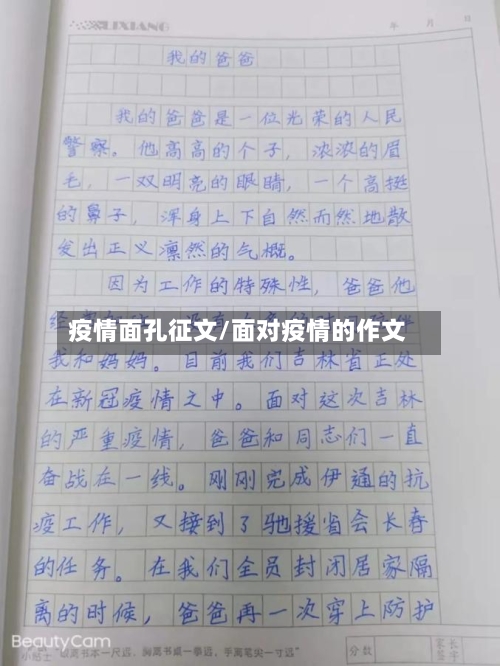 LIXIANG
年 月 日
我的爸爸
我的爸爸是一位光荣的人民
警察。他高高的个子,浓浓的眉
毛,一双明亮的眼睛,一个高挺
的鼻子,浑身上下自然而然地散
发出正义凛然的气概。
因为工作的特殊性,爸爸他
疫情面孔征文/面对疫情的作文
我和妈妈。目前我们吉林省正处
在新冠疫情之中。面对这次吉林
的严重疫情,爸爸和同志们一直
奋战在一线。刚刚完成伊通的抗
疫工作,又接到了驰援省会长春
的任务。在我们全员封闭居家隔
离的时候,爸爸再一次穿上防护
BeautyCam
小贴士 眼离书本一尺远,胸离书桌一拳远,手离笔尖一寸远
分数
家长
签字